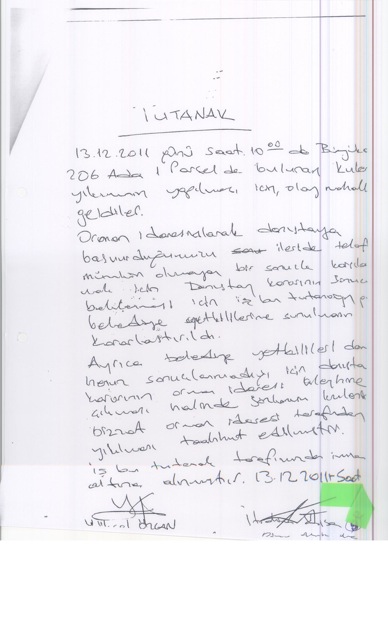 TUTANAK
13.12.2011 günü saat 10:00 da
206 Ada 1 Parsel de bulunan
yıkımının yapılması için, olay mahall
geldiler.
Orman idaresi olarak danıştaya
başvurduğumuzu ileride telaf
mümkün olmayan bir sonuçla karşıla
mak için Danıştay kararının sonuc
için iş bu tutanağın
belediye yetkililerine sunulması
kararlaştırıldı.
Ayrıca belediye yetkilileri
henüz sonuçlanmadığı için danışta
kararının orman idaresi aleyhine
çıkması halinde
bizzat orman idaresi tarafından
yıkılması taahhüt edilmiştir.
iş bu tutanak tarafımızda imza
altına alınmıştır. 13.12.2011 Saat